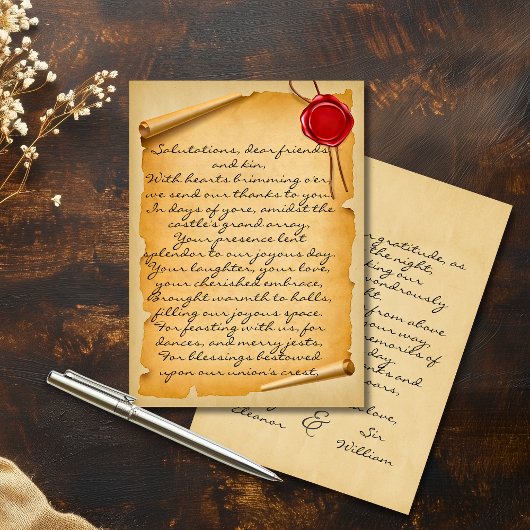 Salutations, dear friends
and kin,
With hearts brimming o'er,
we send our thanks to you.
In days of yore, amidst the
castle's grand array,
Your presence lent
splendor to our joyous day.
Your laughter, your love,
your cherished embrace,
Brought warmth to halls,
filling our joyous space.
For feasting with us, for
dances, and merry jests,
For blessings bestowed
upon our union's crest,
gratitude, as
the night,
our
wondrously
from above
your way,
memories of
day
and
love,
Eleanor & Sir
William